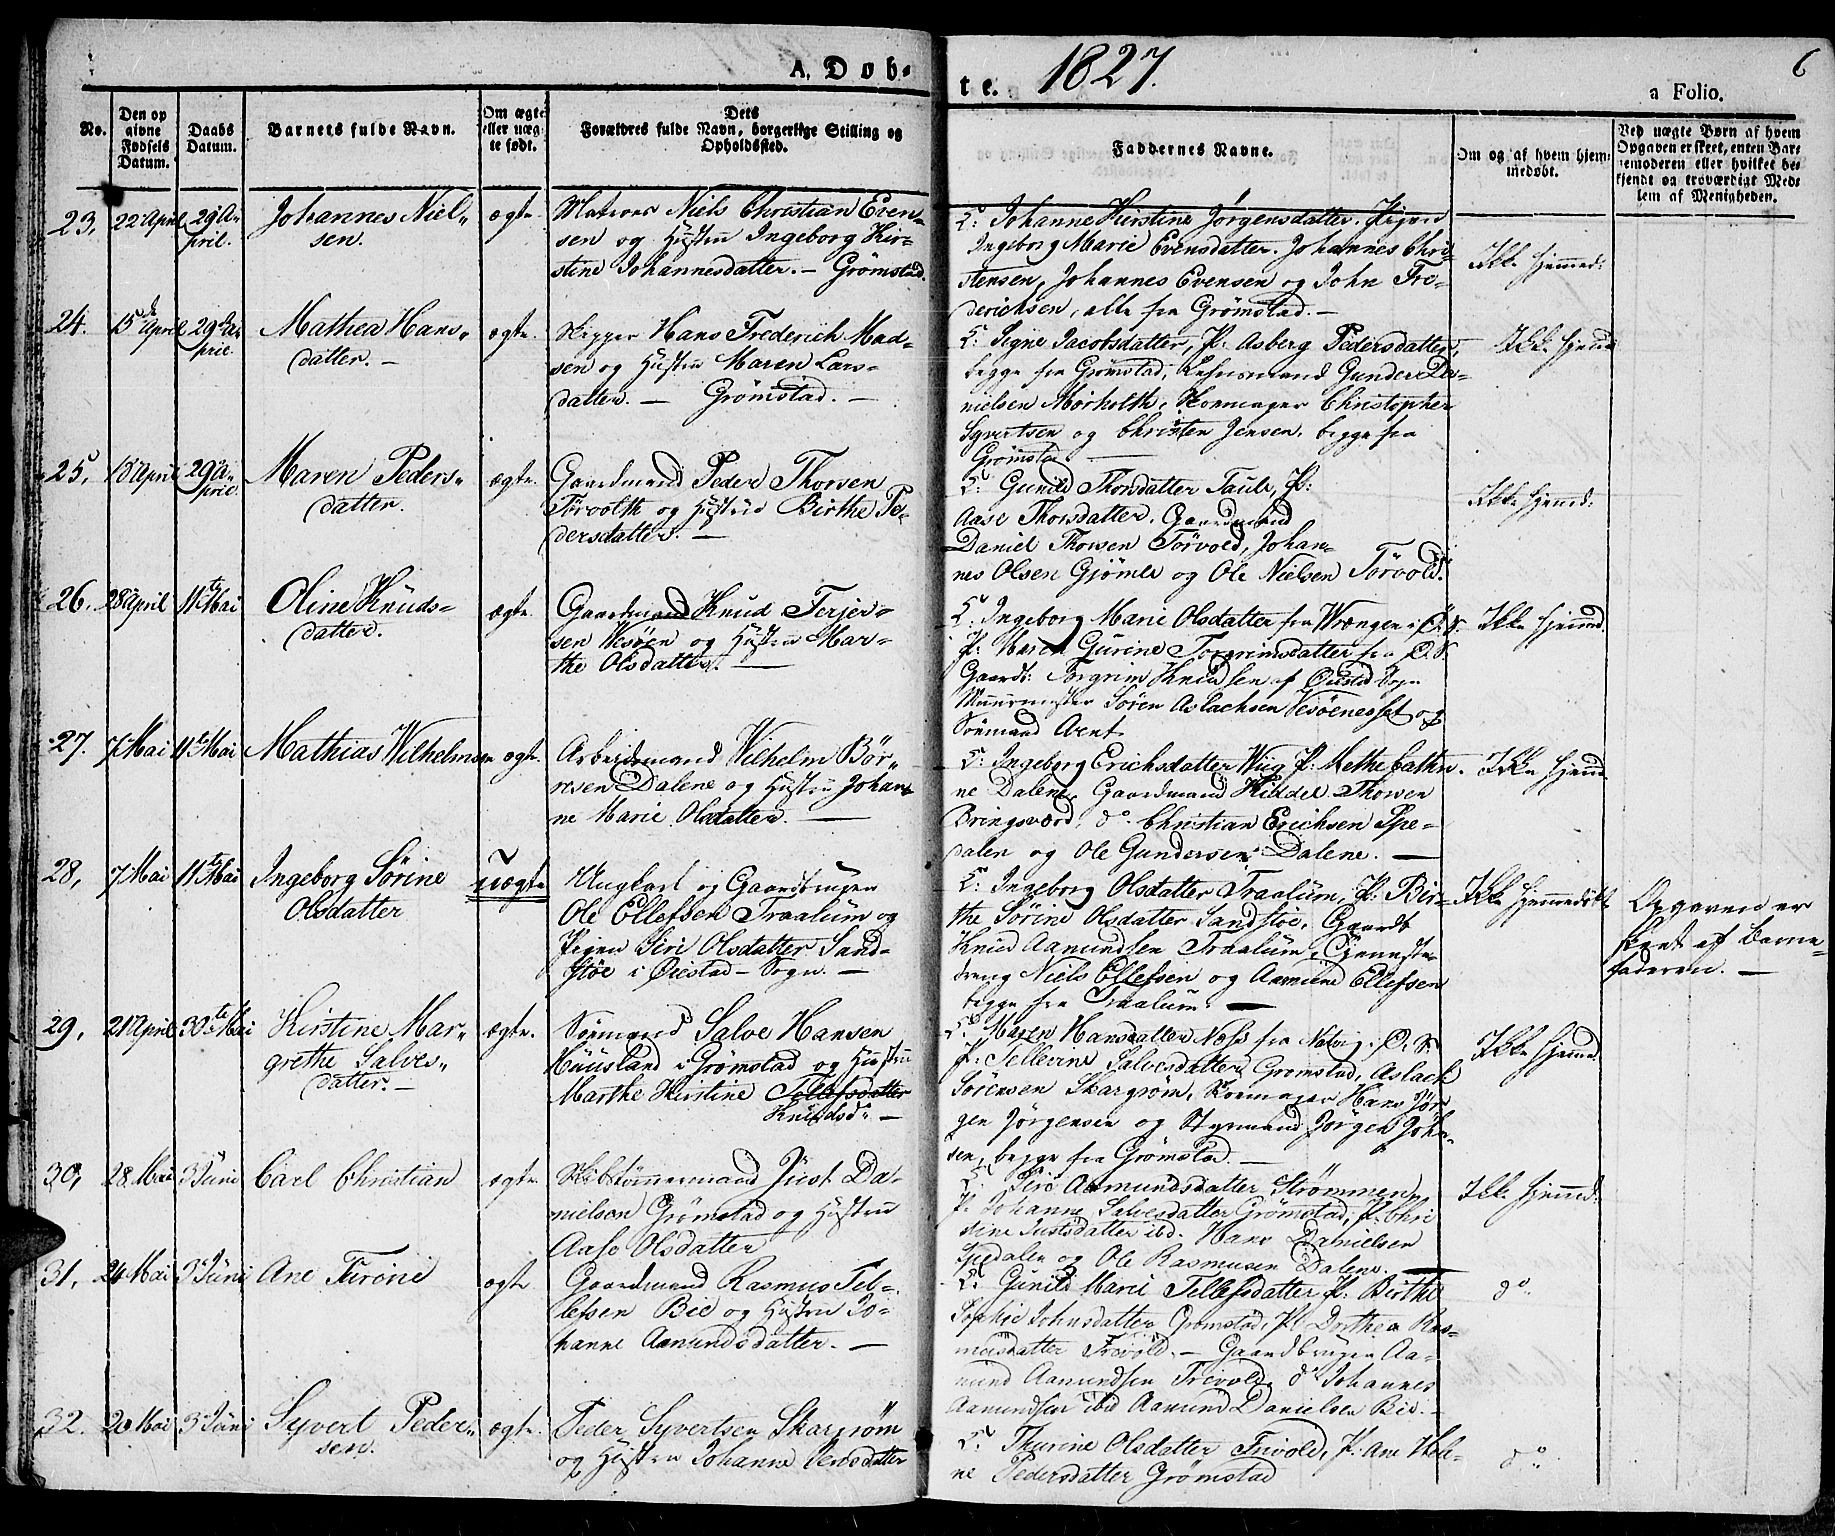 A. Døb-
te. 1827.
a Folio.
6
No.
Den op
givne
Fødsels
Datum.
Daabs
Datum.
Barnets fulde Navn.
Om ægte
eller uæg
te født.
Dets
Forældres fulde Navn, borgerlige Stilling og
Opholdssted.
Faddernes Navne.
Om og af hvem hjem-
medøbt.
Ved uægte Børn af hvem
Opgaven er skeet, enten Bar-
nemoderen eller hvilket be-
kjendt og troværdigt Med-
lem af Menigheden.
23, 22 April 29 A-
pril.
Johannes Niel-
sen.
ægte.
Matros Niels Christian Even-
sen og Hustru Ingeborg Kir-
stine Johannesdatter. — Grømstad.
K: Johanne Kierstine Jørgensdatter. Pigen
Ingeborg Marie Evensdatter. Johannes Chri-
stensen, Johannes Evensen og John Fre-
derichsen, alle fra Grømstad. —
Ikke hjemmed:
24. 15 April 29 A-
pril.
Mathea Hans-
datter. —
ægte.
Skipper Hans Frederich Mad-
sen og Hustru Maren Lars-
datter. — Grømstad. —
K: Signe Jacobsdatter, P: Asberg Pedersdatter,
begge fra Grømstad, Lehnsmand Gunder Da-
nielsen Morholth, Skomager Christopher
Syvertsen og Christen Jensen, begge fra
Grømstad —
Ikke hjemd
25, 15 April 29 A-
pril.
Maren Peders-
datter.
ægte.
Gaardmand Peder Thorsen
Førvolth og Hustrue Birthe Pe-
dersdatter. —
K: Gunild Thorsdatter Taule, P:
Aase Thorsdatter. Gaardmand
Daniel Thorsen Førvold, Johan-
nes Olsen Gjømle og Ole Nielsen Førvold.
Ikke hjemd:
26, 28 April 11te Mai
Oline Knuds-
datter.
ægte.
Gaardmand Knud Terjer-
sen Vesøen og Hustru Mar-
the Olsdatter. —
K: Ingeborg Marie Olsdatter fra Wrængen i Ø. S.
P: Maren Gurine Torgrimsdatter fra Ø. S.
Gaardb: Torgrim Knudsen af Øiestad Sogn
Muurmester Søren Aslachsen Vesøenesset og
Sømand Arent
Ikke hjemd.
27. 7 Mai 11te Mai
Mathias Wilhelmsen
ægte.
Arbeidsmand Wilhelm Bør-
resen Dalene og Hustru Johan-
ne Marie Olsdatter. —
K: Ingeborg Erichsdatter Wiig P: Methe Cathri-
ne Dalene, Gaardmand Kiddel Thorsen
Bringsværd, do. Christian Erichsen Spe-
dalen og Ole Gundersen Dalene. —
Ikke hjemd
28, 7 Mai 11te Mai
Ingeborg Sørine
Olsdatter
uægte
Ungkarl og Gaardbruger
Ole Ellefsen Traalum og
Pigen Siri Olsdatter Sand-
støe i Øiestad-Sogn. —
K: Ingeborg Olsdatter Traalum, P: Bir-
the Sørine Olsdatter Sandstøe, Gaardb
Knud Aamundsen Traalum, Tjeneste-
dreng Niels Ellefsen og Aamund Ellefsen
begge fra Traalum. —
Ikke hjemmedøbt.
Opgaven er
skeet af Barne-
faderen. —
29, 21 April 30te Mai
Kirstine Mar-
grethe Salves-
datter. —
ægte.
Sømand Salve Hansen
Hausland i Grømstad og Hustru
Marthe Kirstine Tellefsdatter
Knudsd. —
K: Maren Hansdatter Næss fra Natvig i Ø. S.
P: Tellerine Salvesdatter Grømstad, Aslach
Sørensen Skargrøm, Skomager Hans Jør-
gen Jørgensen og Styrmand Jørgen Joha-
sen, begge fra Grømstad. —
Ikke hjemd.
30, 28 Mai 3 Juni
Carl Christian
ægte
Skibstømmermand Just Da-
nielsen Grømstad og Hustru
Aase Olsdatter
K: Siri Aamundsdatter Strømmen,
P: Johanne Salvesdatter Grømstad, P: Chri
stine Justsdatter ibd. Hans Danielsen
Spedalen og Ole Rasmusen Dalene. —
Ikke hjemmed:
31, 24 Mai 3 Juni
Ane Turine
ægte
Gaardmand Rasmus Tel-
lefsen Bie og Hustru Jo-
hanne Aamundsdatter. —
K: Gunild Marie Tellefsdatter P: Birthe
Sophie Johnsdatter Grømstad, P: Dorthea Ras-
musdatter Frivold. — Gaardbruger Aa-
mund Aamundsen Frivold, do Johannes
Aamundsen ibd Aamund Danielsen Bie. —
do.
32. 20 Mai 3 Juni
Syvert Peder-
sen.
ægte.
Peder Syvertsen Skargrøm
og Hustru Johanne Jensdatter
K: Thurine Olsdatter Frivold, P: Ane Hele-
ne Pedersdatter Grømstad
do.